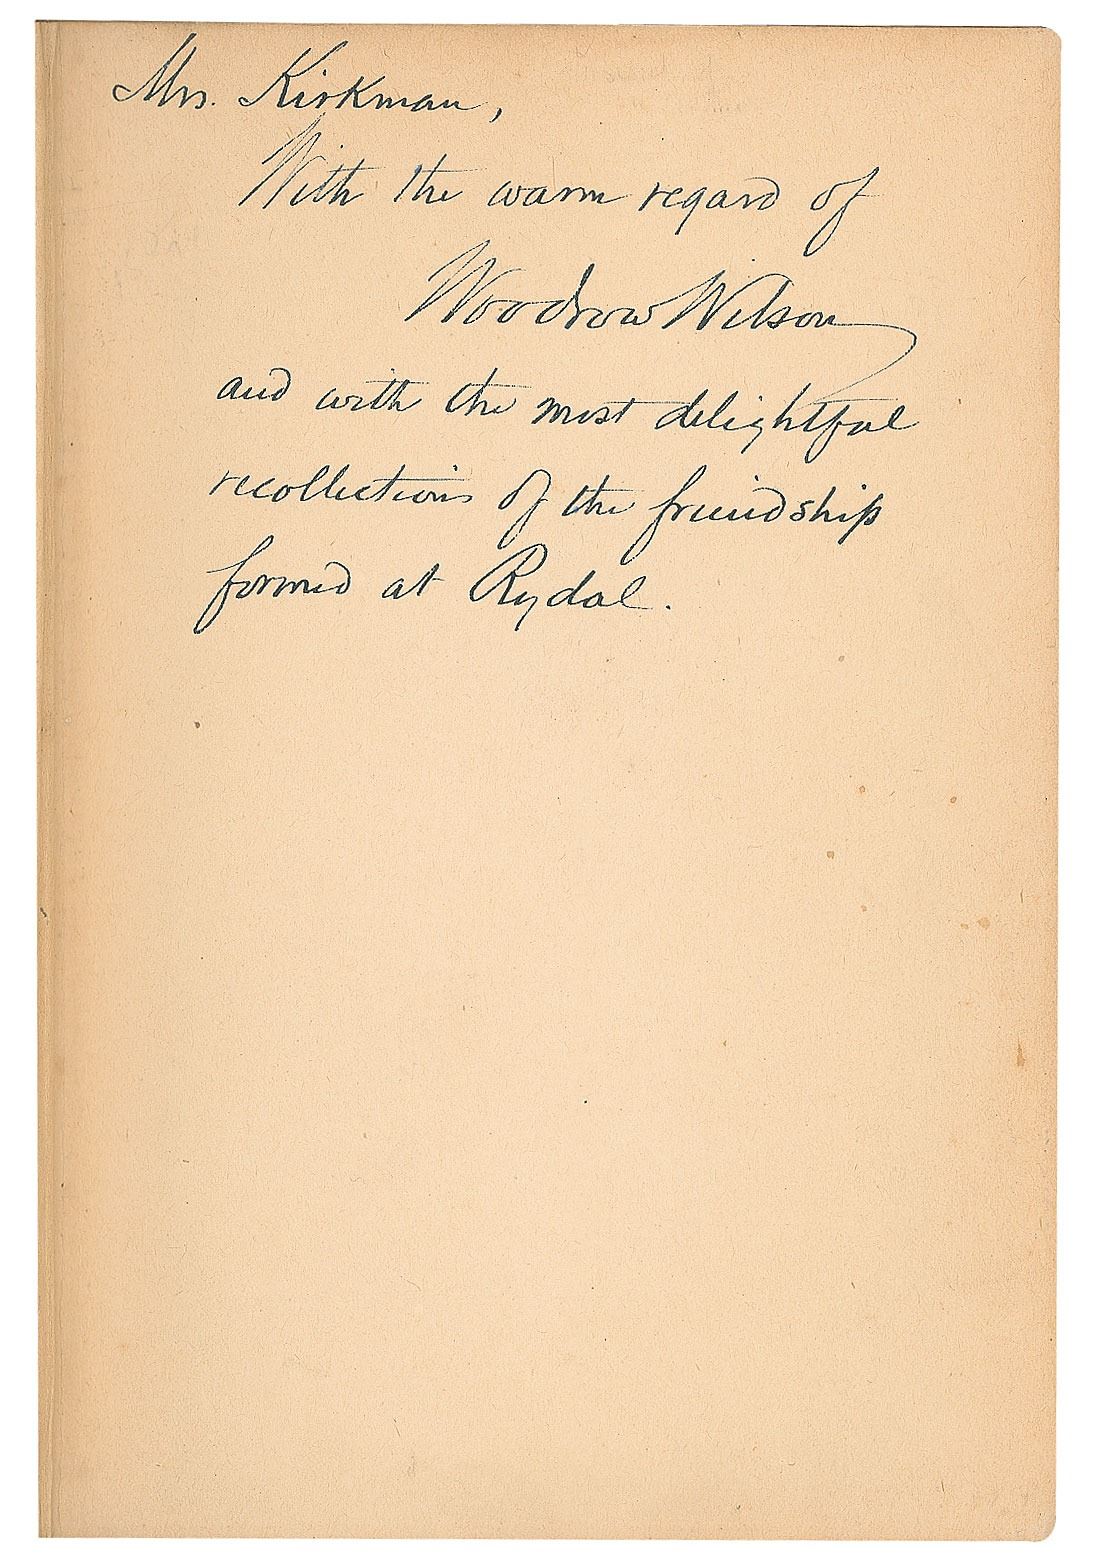 Mrs. Kirkman,
With the warm regard of
Woodrow Wilson
and with the most delightful
recollections of the friendship
formed at Rydal.